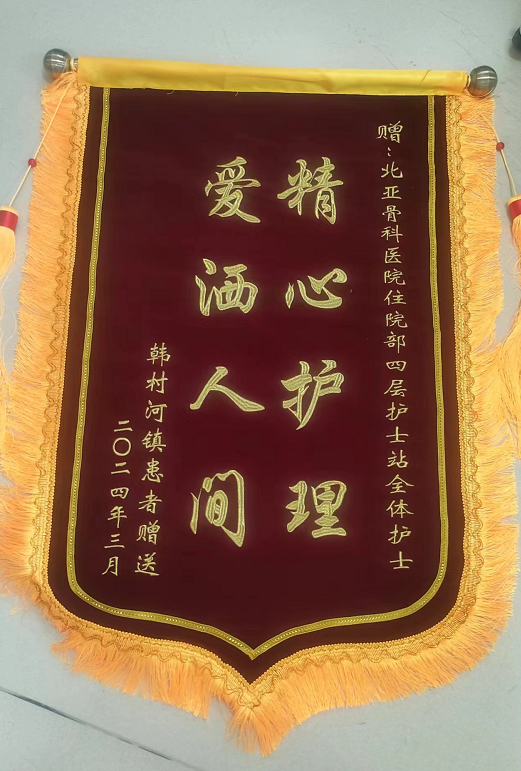 赠：北亚骨科医院住院部四层护士站全体护士
精心护理
爱洒人间
韩村河镇患者赠送
二〇二四年三月